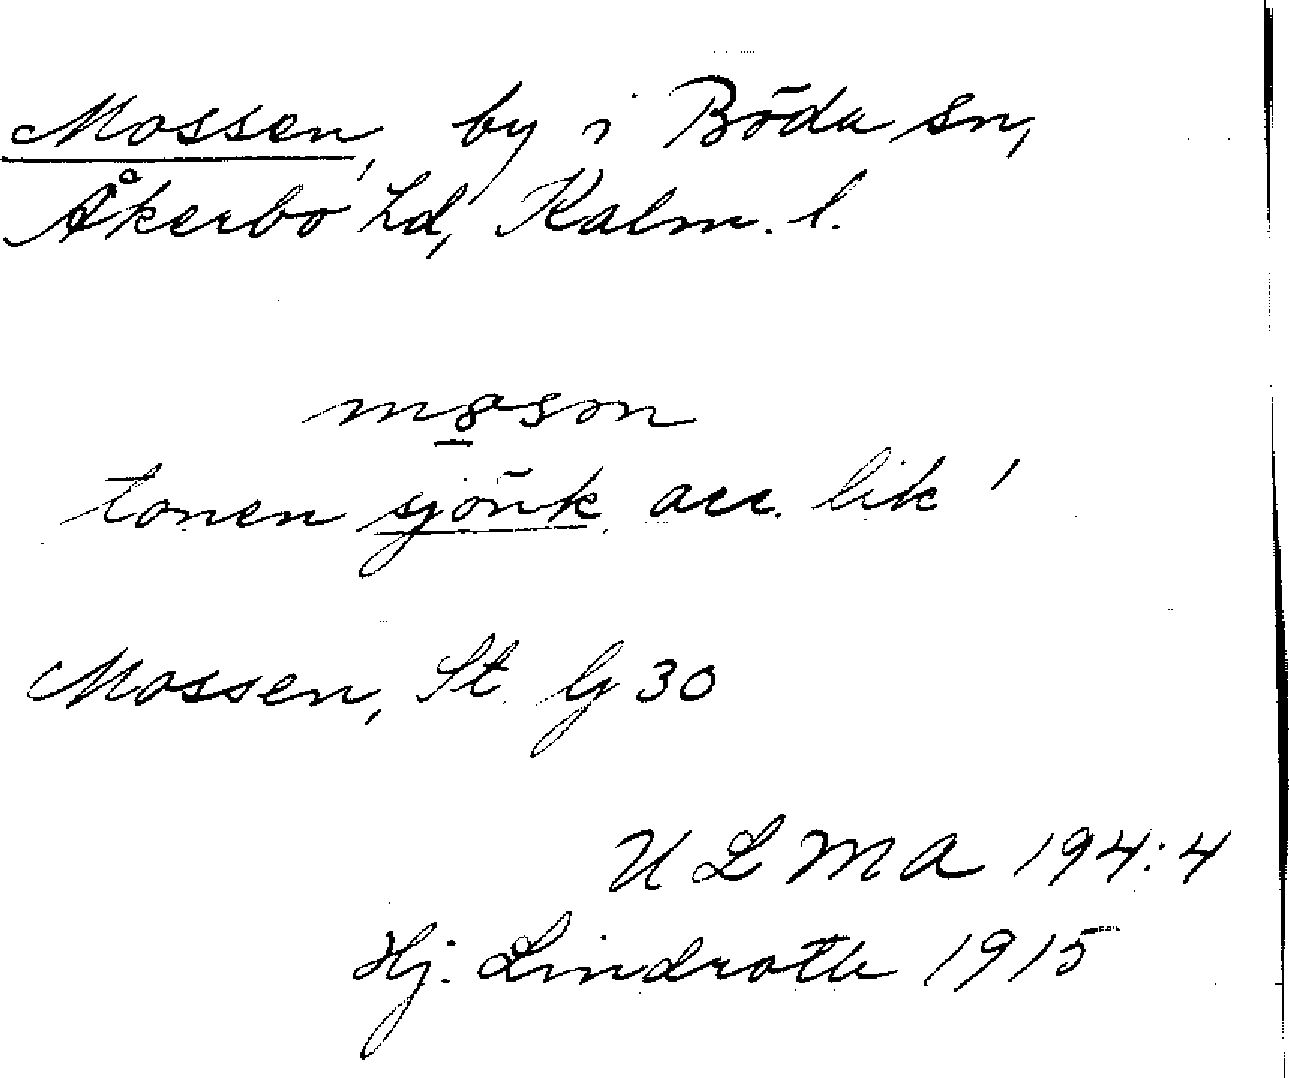 Mossen, by i Böda sn,
Åkerbo hd, Kalm. l.
tonen sjönk acc. lik
Mossen, St. G 30
ULMA 194:4
Hj. Lindroth 1915